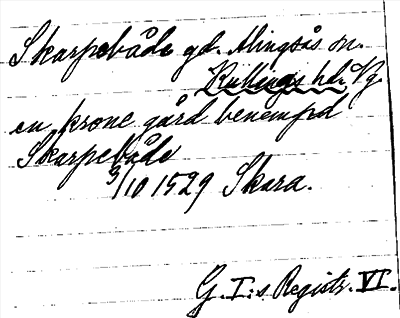 Skarpebåde gd. Alingsås sn.
Kullings hd. Vg.
en krone gård benempd
Skarpebåde
3/10 1529 Skara.
G. I:s Registr. VI.